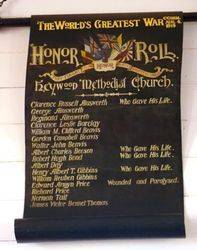 THE WORLD'S GREATEST WAR
HONOR ROLL
Heywood Methodist Church.
Clarence Russell Ainsworth Who Gave His Life.
George Ainsworth
Reginald Ainsworth
Clarence Leslie Barclay
William M. Clifford Beavis
Gordon Campbell Beavis
Walter John Beavis
Albert Charles Beeson Who Gave His Life.
Robert Hugh Bond Who Gave His Life.
Albert Dry
Henry Albert T. Gibbins Who Gave His Life.
William Reuben Gibbins
Edward Price Wounded and Paralysed.
Richard Price
Norman Tait
James Victor Thomas